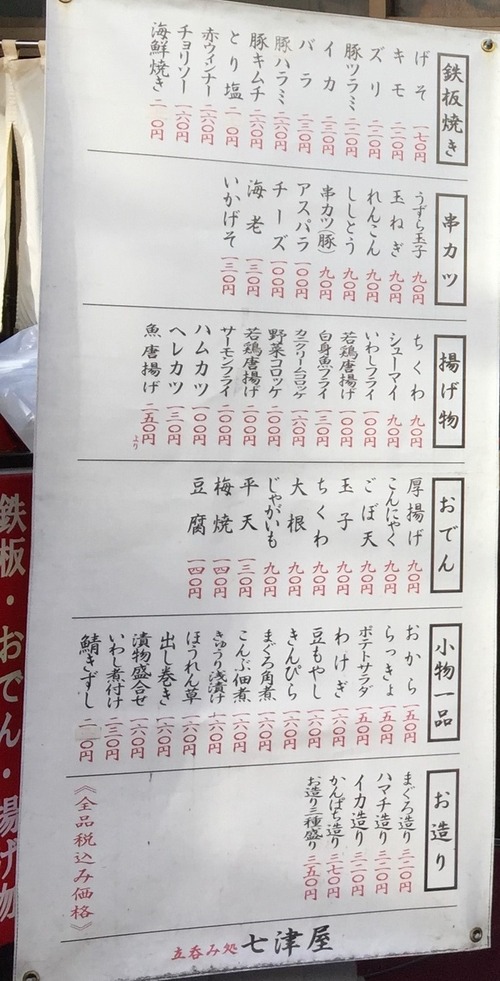 鉄板焼き
げそ 一七〇円
キモ 二二〇円
ズリ 二二〇円
豚ツラミ 二二〇円
イカ 二三〇円
バラ 二三〇円
豚ハラミ 二六〇円
豚キムチ 二六〇円
とり塩
赤ウィンナー 二六〇円
チョリソー 二六〇円
海鮮焼き
串カツ
うずら玉子 九〇円
玉ねぎ 九〇円
れんこん 九〇円
ししとう 九〇円
串カツ(豚) 九〇円
アスパラ 一〇〇円
チーズ 一〇〇円
海老 一三〇円
いかげそ 一三〇円
揚げ物
ちくわ 九〇円
シューマイ 九〇円
いわしフライ 一〇〇円
若鶏唐揚げ 一〇〇円
白身魚フライ 一三〇円
カニクリームコロッケ 一六〇円
野菜コロッケ 二〇〇円
若鶏唐揚げ 二〇〇円
サーモンフライ 二〇〇円
ハムカツ 一〇〇円
ヘレカツ 一三〇円
魚唐揚げ 二五〇円より
おでん
厚揚げ 九〇円
こんにゃく 九〇円
ごぼ天 九〇円
玉子 九〇円
ちくわ 九〇円
大根 九〇円
じゃがいも 九〇円
平天 一三〇円
梅焼 一四〇円
豆腐 一四〇円
小物一品
おから 一五〇円
らっきょ 一五〇円
ポテトサラダ 一五〇円
わけぎ 一六〇円
豆もやし 一六〇円
きんぴら 一六〇円
まぐろ角煮 一六〇円
こんぶ佃煮 一六〇円
きゅうり浅漬け 一六〇円
ほうれん草 一六〇円
出し巻き 一六〇円
漬物盛合せ 一六〇円
いわし煮付け 二三〇円
鯖きずし
お造り
まぐろ造り 三二〇円
ハマチ造り 三二〇円
イカ造り 三二〇円
かんぱち造り 三七〇円
お造り三種盛り 三五〇円
《全品税込み価格》
立呑み処 七津屋
鉄板・おでん・揚げ物